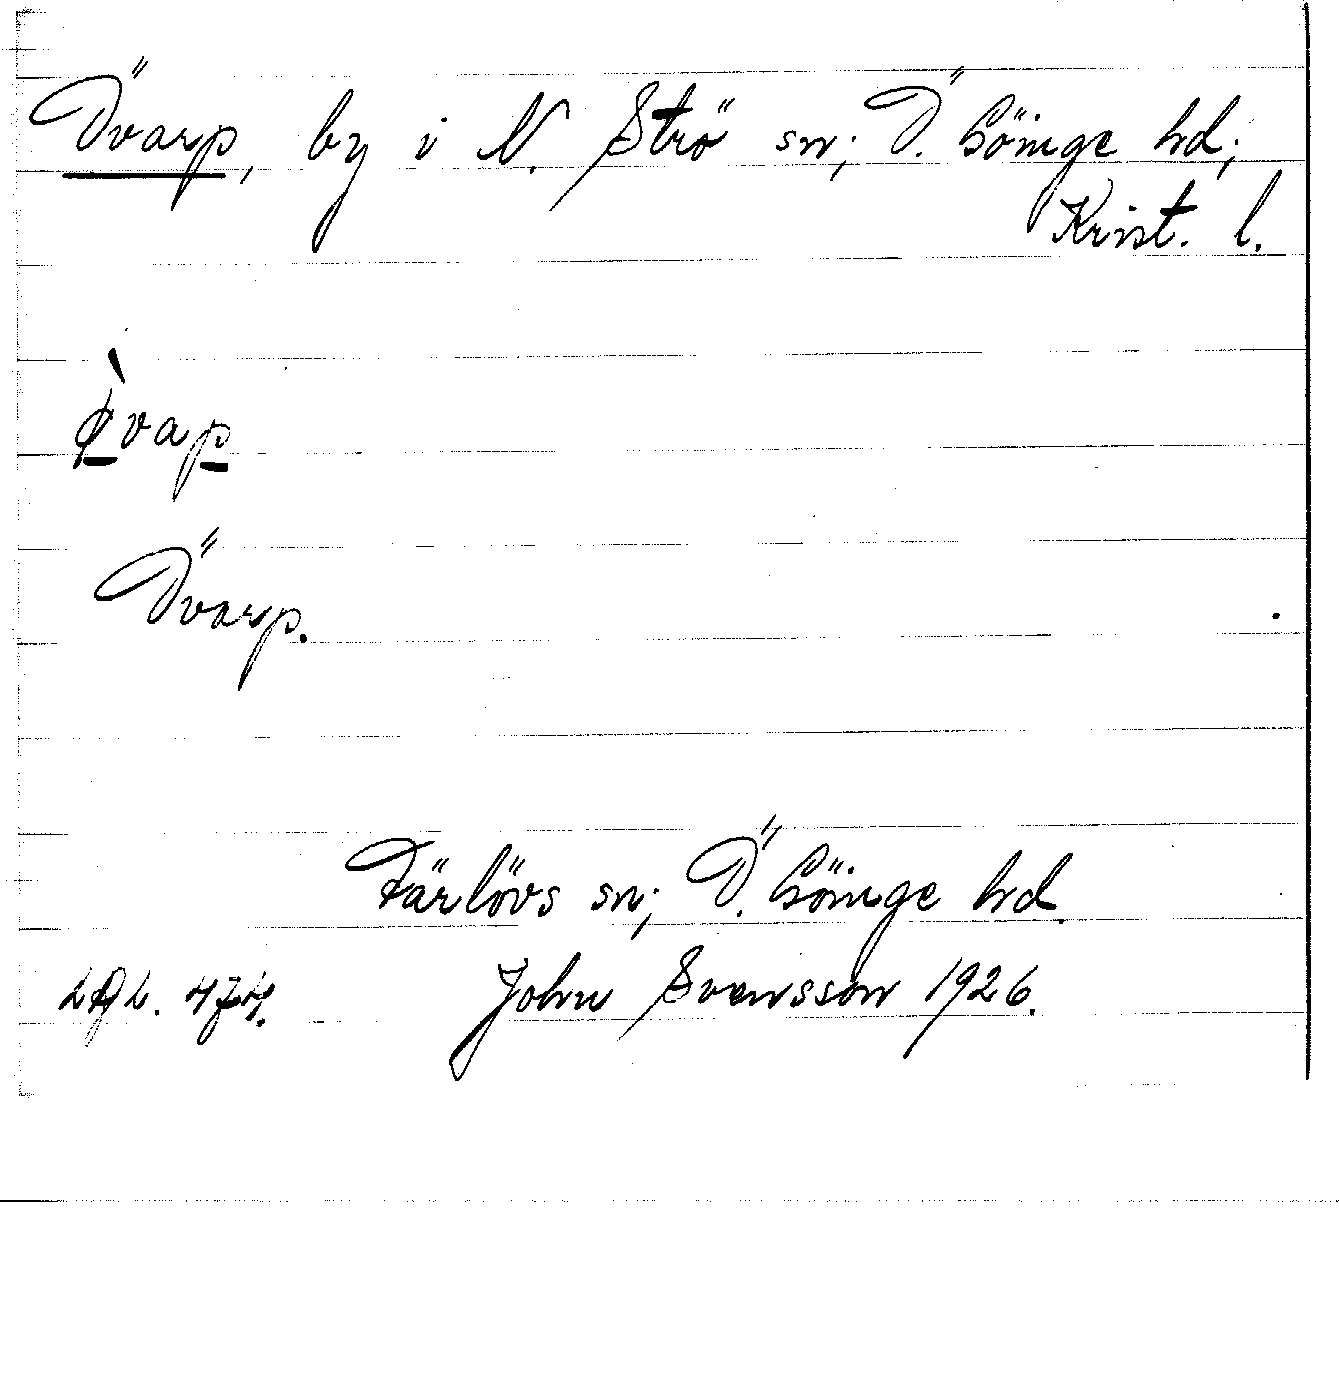 Övarp, by i N. Strö sn; Ö. Göinge hd;
Krist. l.
Övarp.
Färlövs sn; Ö. Göinge hd.
John Svensson 1926.